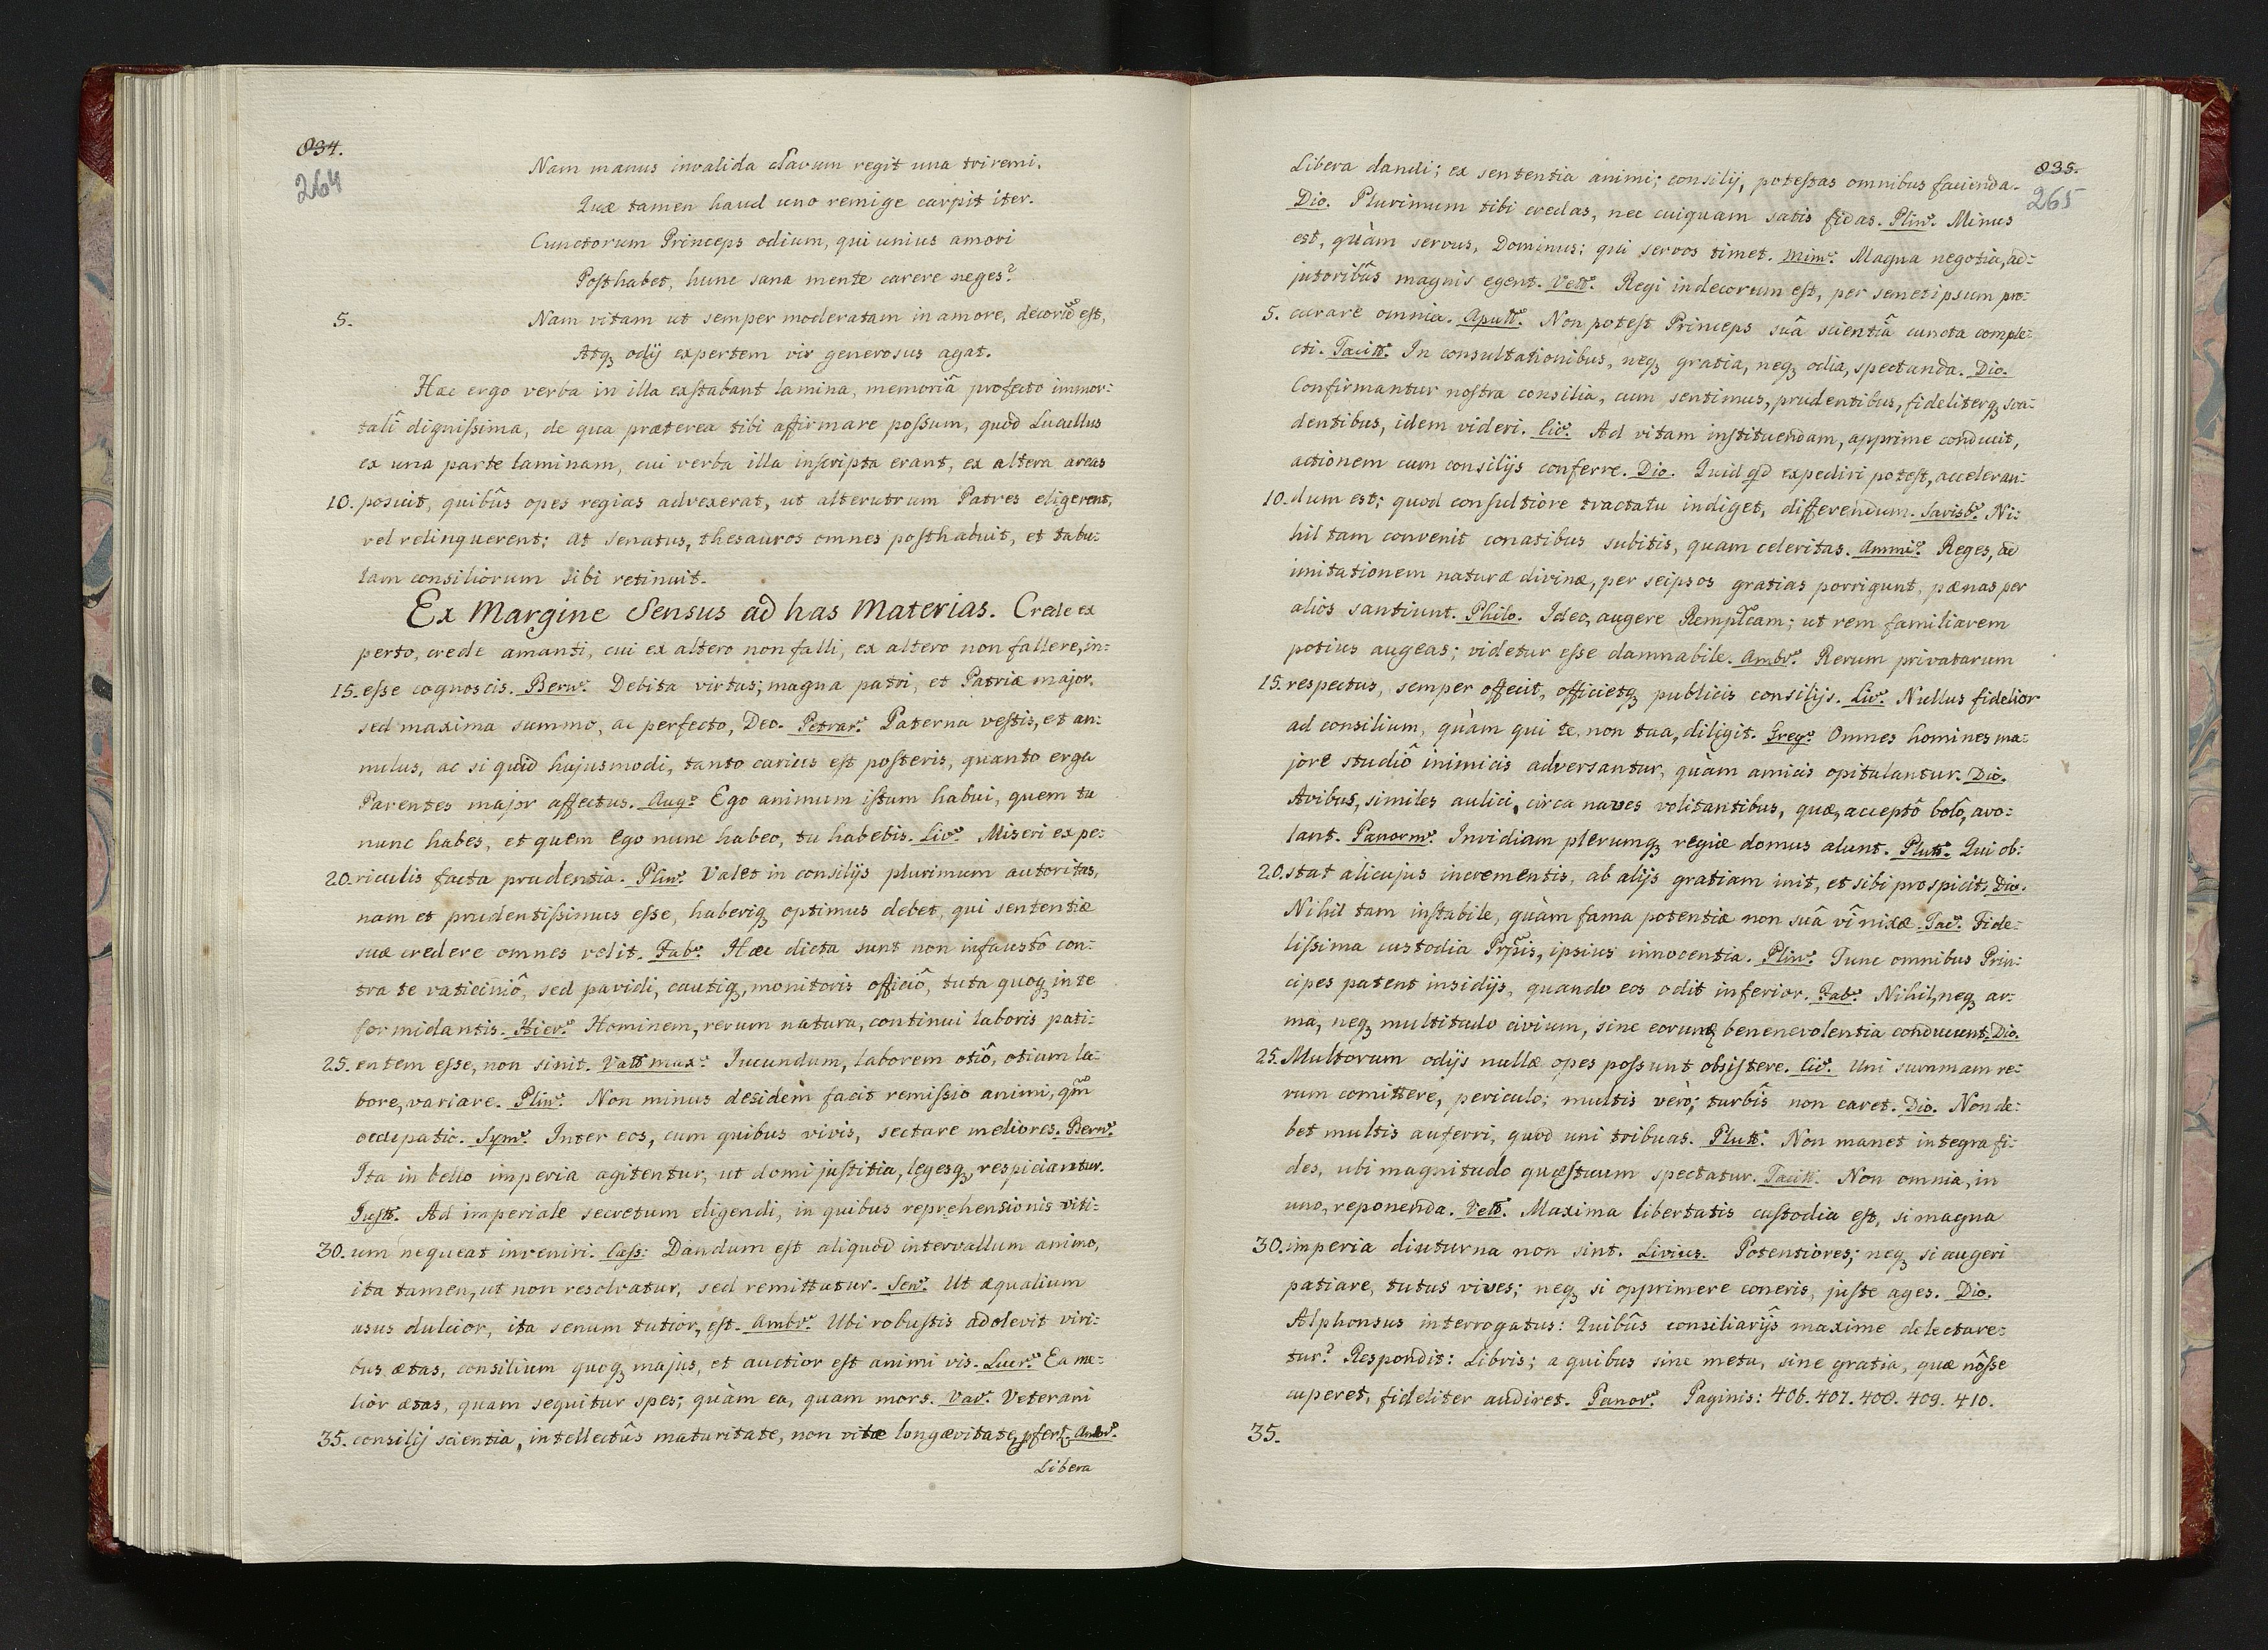 834.
264
Nam manus invalida clavum regit una triremi.
Quæ tamen haud uno remige carpit iter.
Cunctorum Princeps odium, qui unius amori
Posthabet, hunc sana mente carere neges?
5. Nam vitam ut semper moderatam in amore, decorũ est,
Atq; odij expertem vir generosus agat.
Hæc ergo verba in illa exstabant lamina, memoriâ profecto immor:
tali dignissima, de qua præterea tibi affirmare possum, quod Lucullus
ex una parte laminam, cui verba illa inscripta erant, ex altera arcas
10. posuit, quibûs opes regias advexerat, ut alterutrum Patres eligerent,
vel relinquerent; at senatus, thesauros omnes posthabuit, et tabu:
lam consiliorum sibi retinuit.
Ex Margine Sensus ad has Materias. Crede ex
perto, crede amanti, cui ex altero non falli, ex altero non fallere, in:
15. esse cognoscis. Bern. Debita virtus; magna patri, et Patriæ major.
sed maxima summo, ac perfecto, Deo. Petrar. Paterna vestis, et an:
nulus, ac si quid hujusmodi, tanto carius est posteris, quanto erga
Parentes major affectus. Aug. Ego animum istum habui, quem tu
nunc habes, et quem ego nunc habeo, tu habebis. Liv. Miseri ex pe:
20. riculis facta prudentia. Plin. Valet in consilijs plurimum autoritas,
nam et prudentissimus esse, haberiq; optimus debet, qui sententiæ
suæ credere omnes velit. Fab. Hæc dicta sunt non infaustô con:
tra te vaticiniô, sed pavidi, cautiq;, monitoris officiô, tuta quoq; in te
formidantis. Hier. Hominem, rerum natura, continui laboris pati:
25. entem esse, non sinit. Vall max: Jucundum, laborem otiô, otium la:
bore, variare. Plin. Non minus desidem facit remissio animi, qm̃
occupatio. Sym. Inter eos, cum quibus vivis, sectare meliores. Bern.
Ita in bello imperia agitentur, ut domi justitia, legesq; respiciantur.
Just. Ad imperiale secretum eligendi, in quibus reprehensionis viti:
30. um nequeat inveniri. Cass: Dandum est aliquod intervallum animo,
ita tamen, ut non resolvatur, sed remittatur. Sen. Ut æqualium
usus dulcior, ita senum tutior, est. Ambr. Ubi robustis adolevit viri:
bus ætas, consilium quoq; majus, et auctior est animi vis. Lucr. Ea me:
lior ætas, quam sequitur spes; quàm ea, quam mors. Var. Veterani
35. consilij scientia, intellectûs maturitate, non vitæ longævitate, pfert. Ambr.
Libera
835.
265
Libera dandi; ex sententia animi; consilij, potestas omnibus facienda.
Dio. Plurimum tibi credas, nec cuiquam satis fidas. Plin. Minus
est, quàm servus, Dominus; qui servos timet. Mim. Magna negotia, ad:
jutoribûs magnis egent. Vell. Regi indecorum est, per semetipsum pro:
5. curare omnia. Apull. Non potest Princeps suâ scientiâ cuncta comple:
cti. Tacitt. In consultationibus, neq; gratia, neq; odia, spectanda. Dio.
Confirmantur nostra consilia, cum sentimus, prudentibus, fideliterq; sva:
dentibus, idem videri. Cic. Ad vitam instituendam, apprime conducit,
actionem cum consilijs conferre. Dio. Quidqd expediri potest, acceleran:
10. dum est; quod consultiore tractatu indiget, differendum. Sarisb. Ni:
hil tam convenit conatibus subitis, quam celeritas. Ammi. Reges, ad
imitationem naturæ divinæ, per seipsos gratias porrigunt, pænas per
alios santiunt. Philo. Ideo, augere Rempl̃cam; ut rem familiarem
potius augeas; videtur esse damnabile. Ambr. Rerum privatarum
15. respectus, semper offecit, officietq; publicis consilijs. Liv. Nullus fidelior
ad consilium, quàm qui te, non tua, diligit. Greg. Omnes homines ma:
jore studiô inimicis adversantur, quàm amicis opitulantur. Dio.
Avibus, similes aulici, circa naves volitantibus, quæ, acceptô bolô, avo:
lant. Panorm. Invidiam plerumq; regiæ domus alunt. Plutt. Qui ob:
20. stat alicujus incrementis, ab alijs gratiam init, et sibi prospicit. Dio.
Nihil tam instabile, quàm fama potentiæ non suâ vî nixæ. Tac. Fide:
lissima custodia Prpis, ipsius innocentia. Plin. Tunc omnibus Prin:
cipes patent insidijs, quando eos odit inferior. Fab. Nihil, neq; ar:
ma, neq; multitudo civium, sine eorunq; benenevolentia conducunt. Dio.
25. Multorum odijs nullæ opes possunt obsistere. Cic. Uni summam re:
rum comittere, periculo; multis verò; turbis non caret. Dio. Non de:
bet multis auferri, quod uni tribuas. Plutt. Non manet integra fi:
des, ubi magnitudo quæstuum spectatur. Tacitt. Non omnia, in
uno, reponenda. Vell. Maxima libertatis custodia est, si magna
30. imperia diuturna non sint. Livius. Potentiores; neq; si augeri
patiare, tutus vives; neq; si opprimere coneris, juste ages. Dio.
Alphonsus interrogatus: Quibûs consiliarijs maxime delectare:
tur? Respondit: Libris; a quibus sine metu, sine gratia, quæ nôsse
cuperet, fideliter audiret. Panor. Paginis: 406. 407. 408. 409. 410.
35.